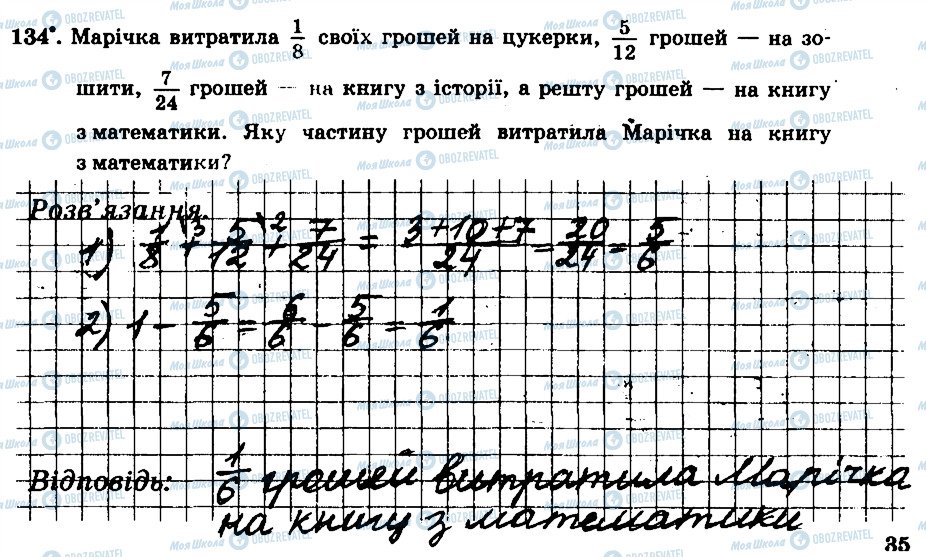 134°. Марічка витратила 1/8 своїх грошей на цукерки, 5/12 грошей — на зо-
шити, 7/24 грошей — на книгу з історії, а решту грошей — на книгу
з математики. Яку частину грошей витратила Марічка на книгу
з математики?
Розв'язання.
1) 1/8 \3 + 5/12 \2 + 7/24 = 3+10+7/24 = 20/24 = 5/6
2) 1 - 5/6 = 6/6 - 5/6 = 1/6
Відповідь: 1/6 грошей витратила Марічка
на книгу з математики
35